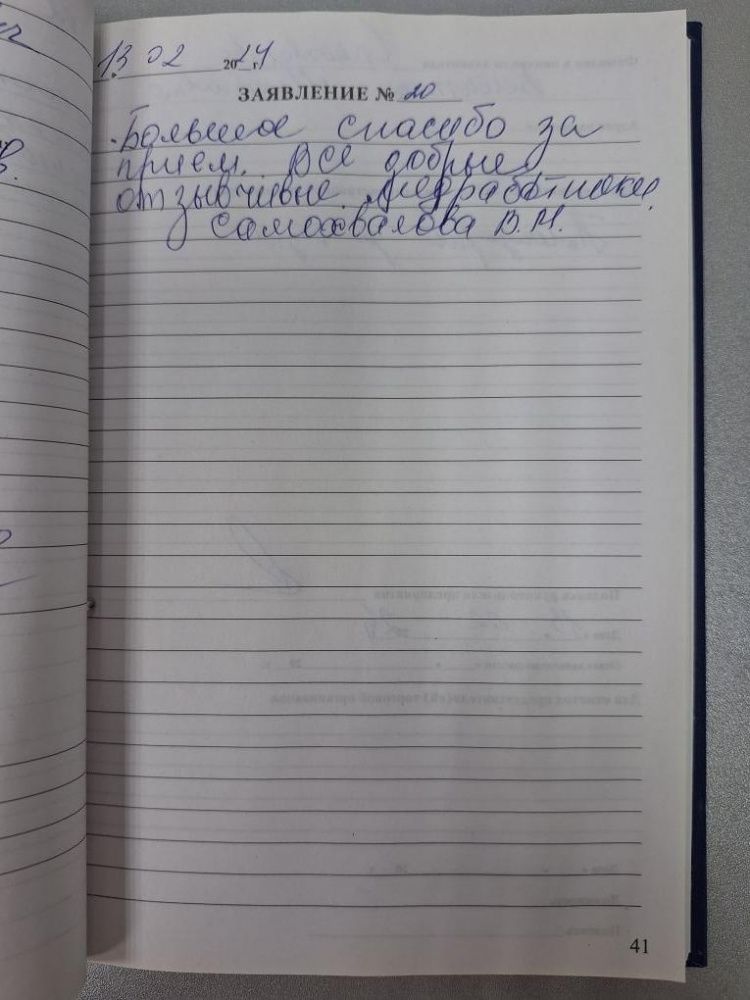 13 02 2024 г.
ЗАЯВЛЕНИЕ № 20
Большое спасибо за
прием. Все добрые
отзывчивые медработники.
Самохвалова В.М.
41